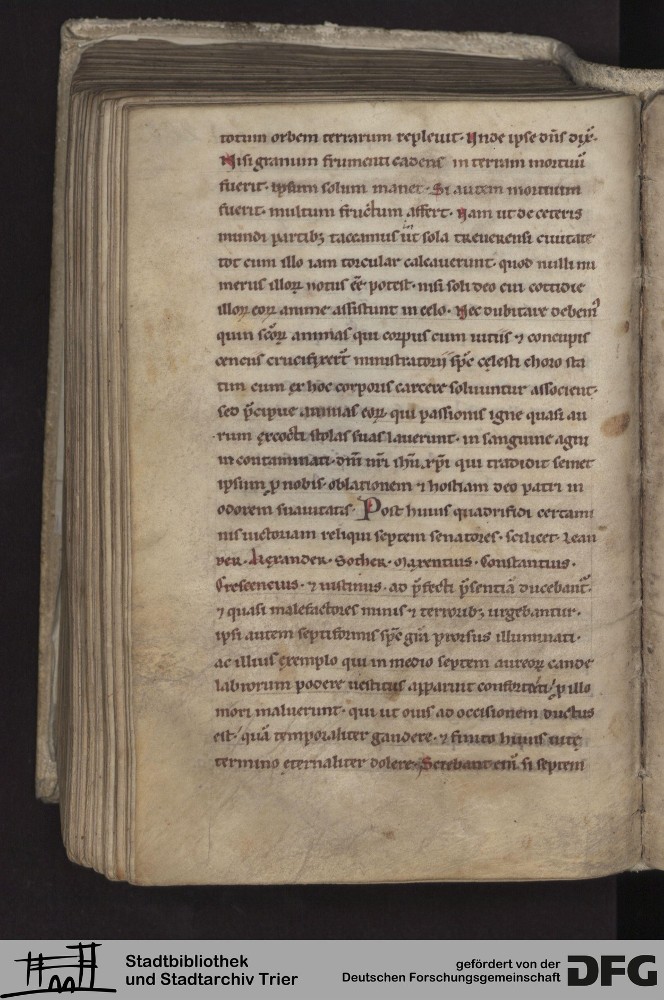 totum orbem terrarum repleuit· Unde ipse dn̄s dix̄·
Nisi granum frumenti cadens in terram mortuū
fuerit· ipsum solum manet· Si autem mortuum
fuerit· multum fructum affert· Nam ut de ceteris
mundi partibꝫ taceamus sola treuerensi ciuitate
tot cum illo iam torcular calcauerunt· quod nulli nu
merus illoꝝ notus eē potest· nisi soli deo cui cottidie
illoꝝ eoꝝ anime assistunt in celo· Nec dubitare debemꝰ
quin scōꝝ animas qui corpus cum uitiis ⁊ concupis
centiis crucifixert̄ ministratorii sp̄c celesti choro sta
tim cum ex hoc corporis carcere soluuntur associent·
sed p̄cipue animas eoꝝ· qui passionis igne quasi au
rum excocti stolas suas lauerunt· in sanguine agni
incontaminati· dn̄i nr̄i ihū xp̄i qui tradidit semet
ipsum ꝓ nobis· oblationem ⁊ hostiam deo patri in
odorem suauitatis· Post huius quadrifidi certami
nis uictoriam reliqui septem senatores· scilicet· Lean
der· Alexander· Sother· Maxentius· Constantius·
Crescencius· ⁊ iustinus· ad p̄fecti p̄sentiā ducebant̄·
⁊ quasi malefactores minis ⁊ terroribꝫ urgebantur·
ipsi autem septiformis sp̄c gr̄a prorsus illuminati·
ac illius exemplo qui in medio septem aureoꝝ cande
labrorum podere uestitus apparuit confortati· ꝑ illo
mori maluerunt· qui ut ouis ad occisionem ductus
est· quā temporaliter gaudere· ⁊ finito huius uitę
termino ęternaliter dolere· septem
Stadtbibliothek
und Stadtarchiv Trier
gefördert von der
Deutschen Forschungsgemeinschaft
DFG